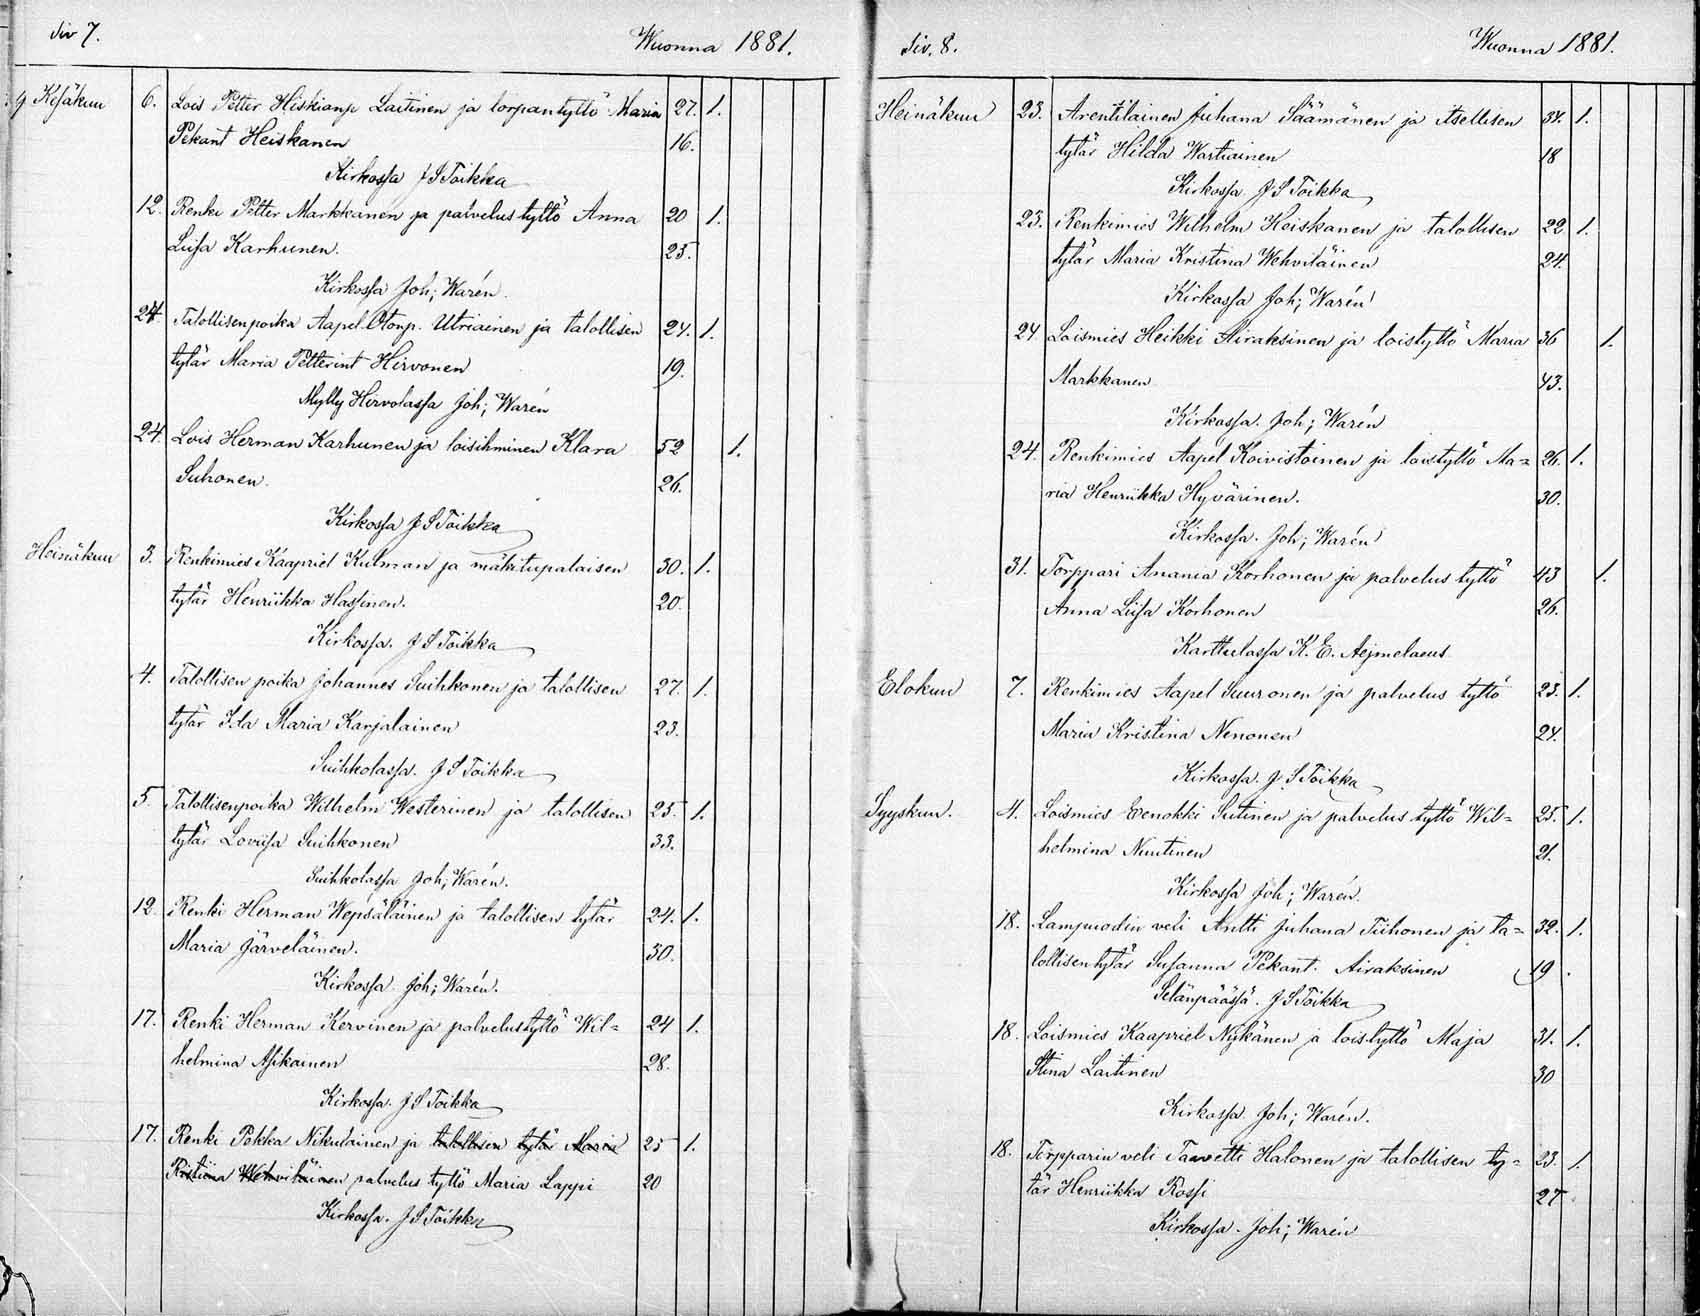 Siv 7.
Wuonna 1881.
Kesäkuu 6. Lois Petter Hiskianp Laitinen ja torpantyttö Maria 27. 1.
Pekant Heiskanen 16.
Kirkossa J S Toikka
12. Renki Petter Markkanen ja palvelustyttö Anna 20 1.
Luisa Karhunen. 25.
Kirkossa Joh; Warén.
24. Talollisenpoika Aapel Otonp. Utriainen ja talollisen 24. 1.
tytär Maria Petterint Hirvonen 19.
Mylly Hirvolassa Joh; Warén
24. Lois Herman Karhunen ja loisihminen Klara 52 1.
Suhonen. 26.
Kirkossa J S Toikka
Heinäkuu 3. Renkimies Kaapriel Kulman ja mäkitupalaisen 30. 1.
tytär Henriikka Hassinen. 20.
Kirkossa. J S Toikka
4. Talollisen poika Johannes Suihkonen ja talollisen 27. 1.
tytär Ida Maria Karjalainen 23.
Suihkolassa. J S Toikka
5. Talollisenpoika Wilhelm Westerinen ja talollisen 25. 1.
tytär Loviisa Suihkonen 33.
Suihkolassa Joh; Warén.
12. Renki Herman Wepsäläinen ja talollisen tytär 24. 1.
Maria Järveläinen. 30.
Kirkossa. Joh; Warén.
17. Renki Herman Kervinen ja palvelustyttö Wil=
24 1.
helmina Asikainen 28.
Kirkossa. J S Toikka
17. Renki Pekka Nikulainen ja talollisen tytär Maria 25 1.
Ristiina Wehviläinen palvelus tyttö Maria Lappi 20
Kirkossa. J S Toikka
Siv. 8.
Wuonna 1881.
Heinäkuu 23. Arentilainen Juhana Säämänen ja itsellisen 34. 1.
tytär Hilda Wartiainen 18
Kirkossa J S Toikka
23. Renkimies Wilhelm Heiskanen ja talollisen 22. 1.
tytär Maria Kristina Wehviläinen 24.
Kirkossa Joh; Warén
24. Loismies Heikki Airaksinen ja loistyttö Maria 36 1.
Markkanen 43.
Kirkossa. Joh; Warén
24. Renkimies Aapel Koivistoinen ja loistyttö Ma= 26. 1.
ria Henriikka Hyvärinen. 30.
Kirkossa. Joh; Warén
31. Torppari Anania Korhonen ja palvelus tyttö 43 1.
Anna Liisa Korhonen 26.
Karttulassa K. E. Aejmelaeus
Elokuu 7. Renkimies Aapel Suuronen ja palvelus tyttö 23. 1.
Maria Kristina Nenonen 24.
Kirkossa. J. S Toikka
Syyskuu. 4. Loismies Eenokki Sutinen ja palvelus tyttö Wil= 25. 1.
helmina Nuutinen 21.
Kirkossa Joh; Warén.
18. Lampuodin veli Antti Juhana Tiihonen ja ta= 32. 1.
lollisen tytär Susanna Pekant. Airaksinen 19.
Selänpäässä. J S Toikka
18. Loismies Kaapriel Nykänen ja loistyttö Maja 31. 1.
Stina Laitinen 30
Kirkossa Joh; Warén.
18. Torpparin veli Taavetti Halonen ja talollisen ty= 23. 1.
tär Henriikka Rossi 27
Kirkossa. Joh; Warén